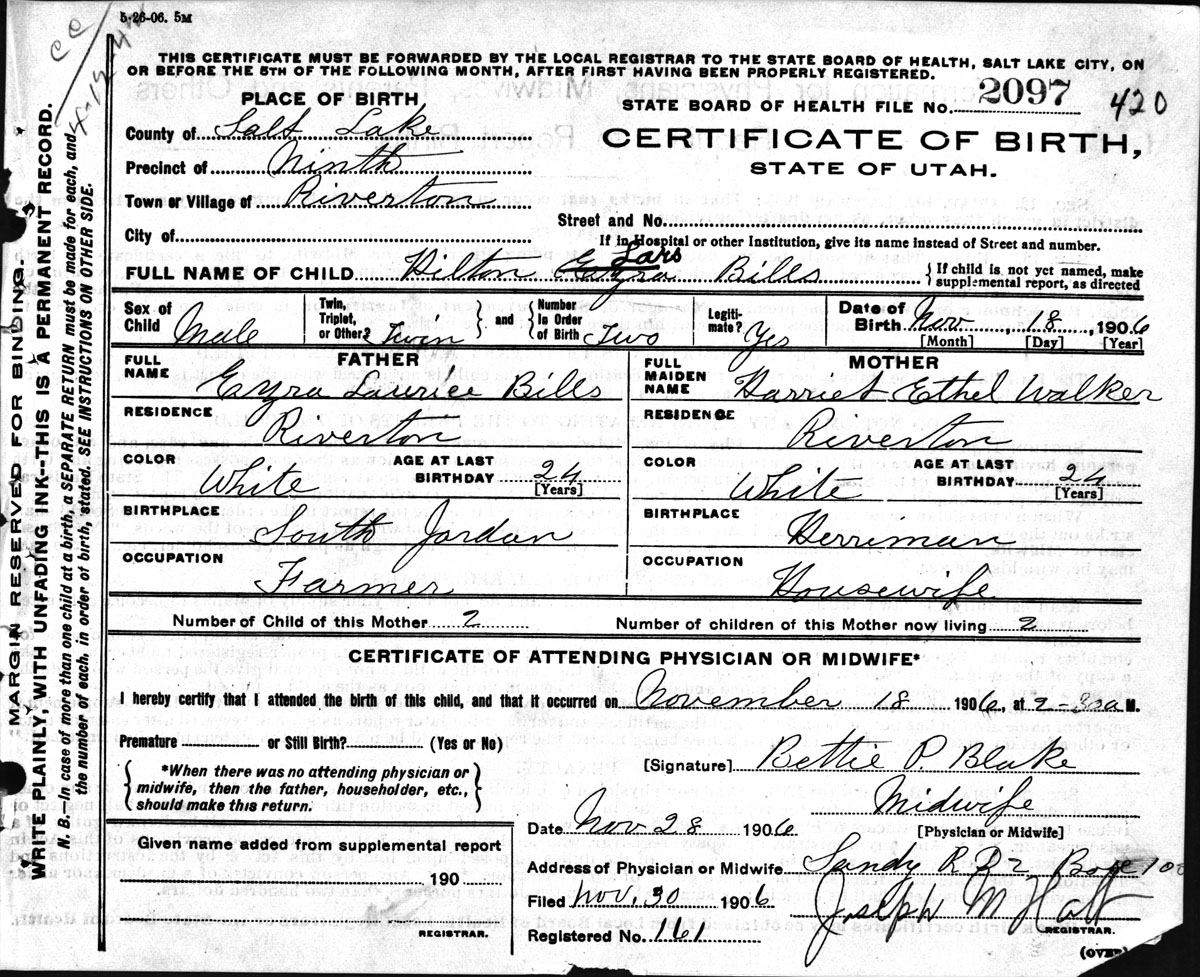 5-26-06. 5M
THIS CERTIFICATE MUST BE FORWARDED BY THE LOCAL REGISTRAR TO THE STATE BOARD OF HEALTH, SALT LAKE CITY, ON
OR BEFORE THE 5TH OF THE FOLLOWING MONTH, AFTER FIRST HAVING BEEN PROPERLY REGISTERED.
PLACE OF BIRTH,
STATE BOARD OF HEALTH FILE No. 2097 420
County of Salt Lake
CERTIFICATE OF BIRTH,
STATE OF UTAH.
Precinct of Ninth
Town or Village of Riverton
Street and No.
City of
If in Hospital or other Institution, give its name instead of Street and number.
Lars
FULL NAME OF CHILD Hilton Ezra Bills
If child is not yet named, make
supplemental report, as directed
Sex of Child Male
Twin, Triplet, or Other? Twin
and
Number in Order of Birth Two
Legitimate? Yes
Date of Birth Nov 18, 1906
[Month] [Day] [Year]
FATHER
FULL NAME Ezra Laurice Bills
RESIDENCE Riverton
COLOR White
AGE AT LAST BIRTHDAY 24
[Years]
BIRTHPLACE South Jordan
OCCUPATION Farmer
MOTHER
FULL MAIDEN NAME Harriet Ethel Walker
RESIDENCE Riverton
COLOR White
AGE AT LAST BIRTHDAY 24
[Years]
BIRTHPLACE Herriman
OCCUPATION Housewife
Number of Child of this Mother 2
Number of children of this Mother now living 2
CERTIFICATE OF ATTENDING PHYSICIAN OR MIDWIFE*
I hereby certify that I attended the birth of this child, and that it occurred on November 18 1906, at 2-30a M.
Premature or Still Birth? (Yes or No)
[Signature] Bettie P. Blake
*When there was no attending physician or
midwife, then the father, householder, etc.,
should make this return.
Midwife
Date Nov 28 1906
[Physician or Midwife]
Given name added from supplemental report
190
REGISTRAR.
Address of Physician or Midwife Sandy R D 2, Box 100
Filed Nov. 30 1906
Joseph M Holt
REGISTRAR.
Registered No. 161
(OVER)
MARGIN RESERVED FOR BINDING
WRITE PLAINLY, WITH UNFADING INK-THIS IS A PERMANENT RECORD.
N. B. In case of more than one child at birth, a SEPARATE RETURN must be made for each, and
the number of each, in order of birth, stated. SEE INSTRUCTIONS ON OTHER SIDE.